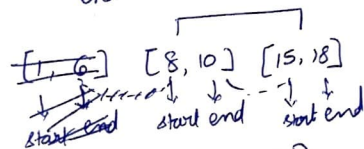 [1, 6] [8, 10] [15, 18]
start end start end start end